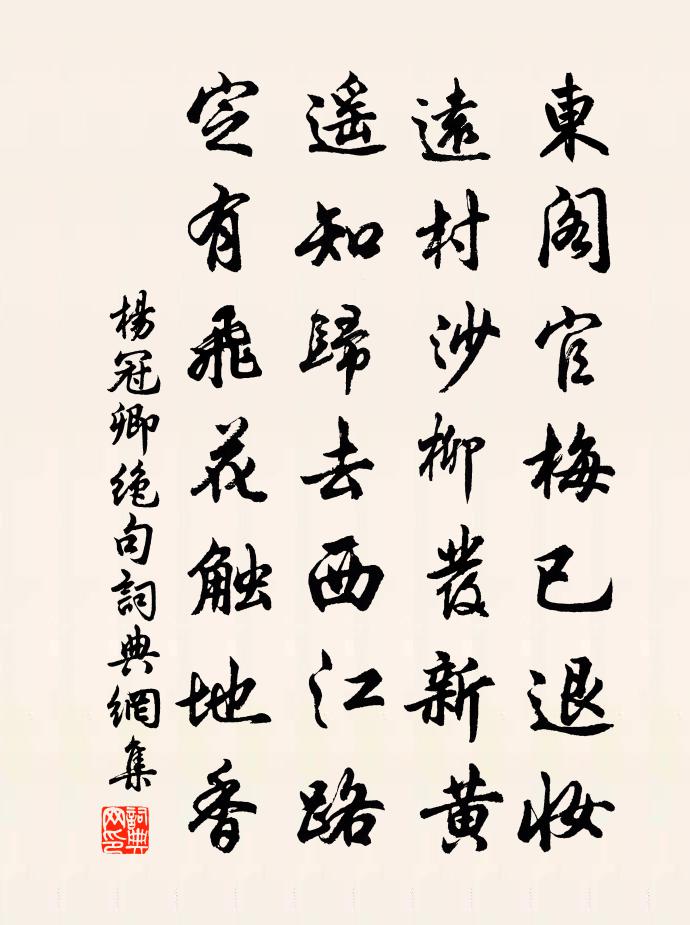 東閣官梅已退妝
遠村沙柳發新黄
遥知歸去西江路
定有飛花触地香
楊冠卿絶句詞典網集
詞典网印